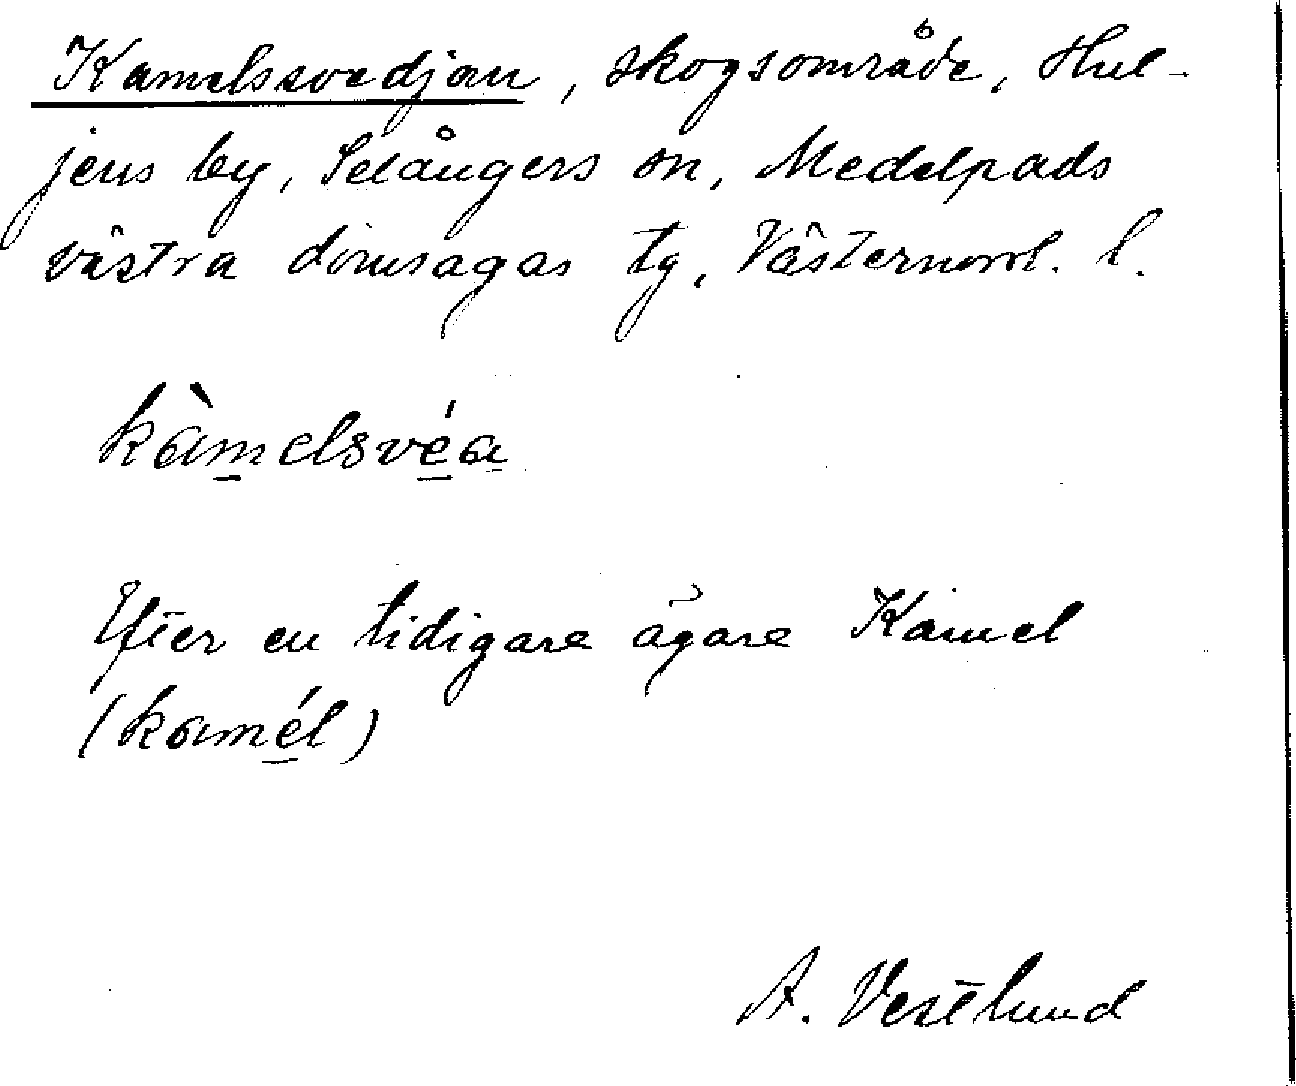 Kamelssvedjan, skogsområde, Hul-
jens by, Selångers sn, Medelpads
västra domsagas tg, Västernorrl. l.
kàmelsvéa
Efter en tidigare ägare Kamel
(kamél)
A. Vestlund